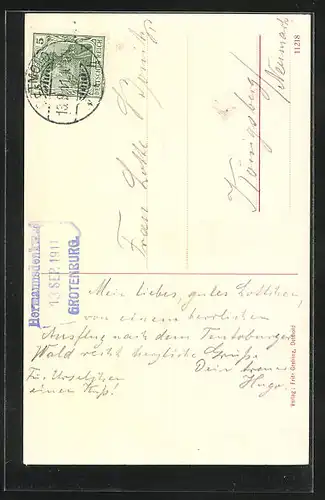 5
DEUTSCHES REICH
11238
Frau Lotte
Königsberg/
Neumark
Hermannsdenkmal
13 SEP. 1911
GROTENBURG.
Mein liebes, gutes Lottchen,
von einem herrlichen
Ausflug nach dem Teutoburger
Wald recht herzliche Grüße
Dein treuer
Hugo.
Für Urselchen
einen Kuß!
Verlag: Fritz Grelling, Detmold